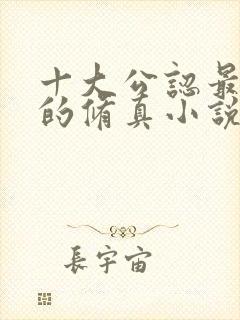 十大公認最
的脩真小說
長宇宙